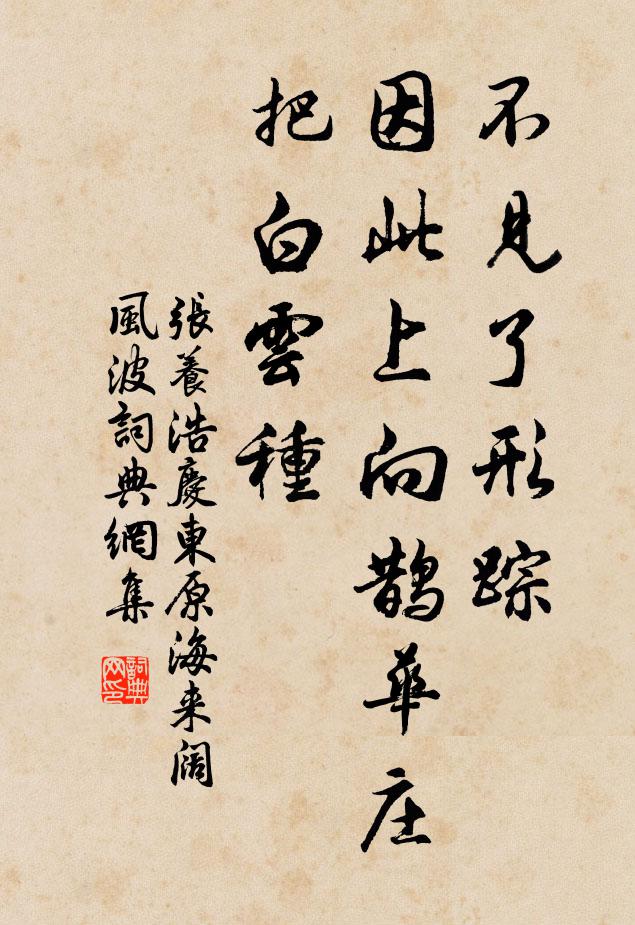 不見了形踪
因此上向鵲華庄
把白雲種
張養浩慶東原海来阔
風波詞典網集
詞典
网印